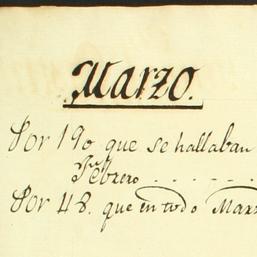 Marzo.
Por 190 que se hallaban
Febrero . . . . . .
Por 48. que en todo Marz